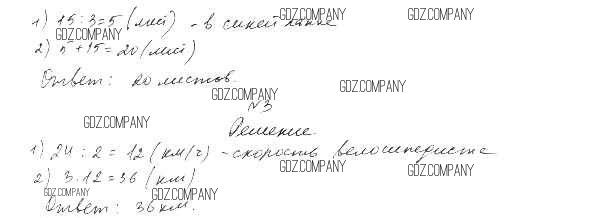 1) 15 : 3 = 5 (лист) - в синей папке
GDZ.COMPANY
GDZ.COMPANY
GDZ.COMPANY
2) 5 + 15 = 20 (лист)
Ответ: 20 листов.
GDZ.COMPANY
GDZ.COMPANY
№3
GDZ.COMPANY
Решение.
1) 24 : 2 = 12 (км/ч) - скорость велосипедиста
GDZ.COMPANY
GDZ.COMPANY
2) 3 . 12 = 36 (км)
GDZ.COMPANY
GDZ.COMPANY
Ответ: 36 км.